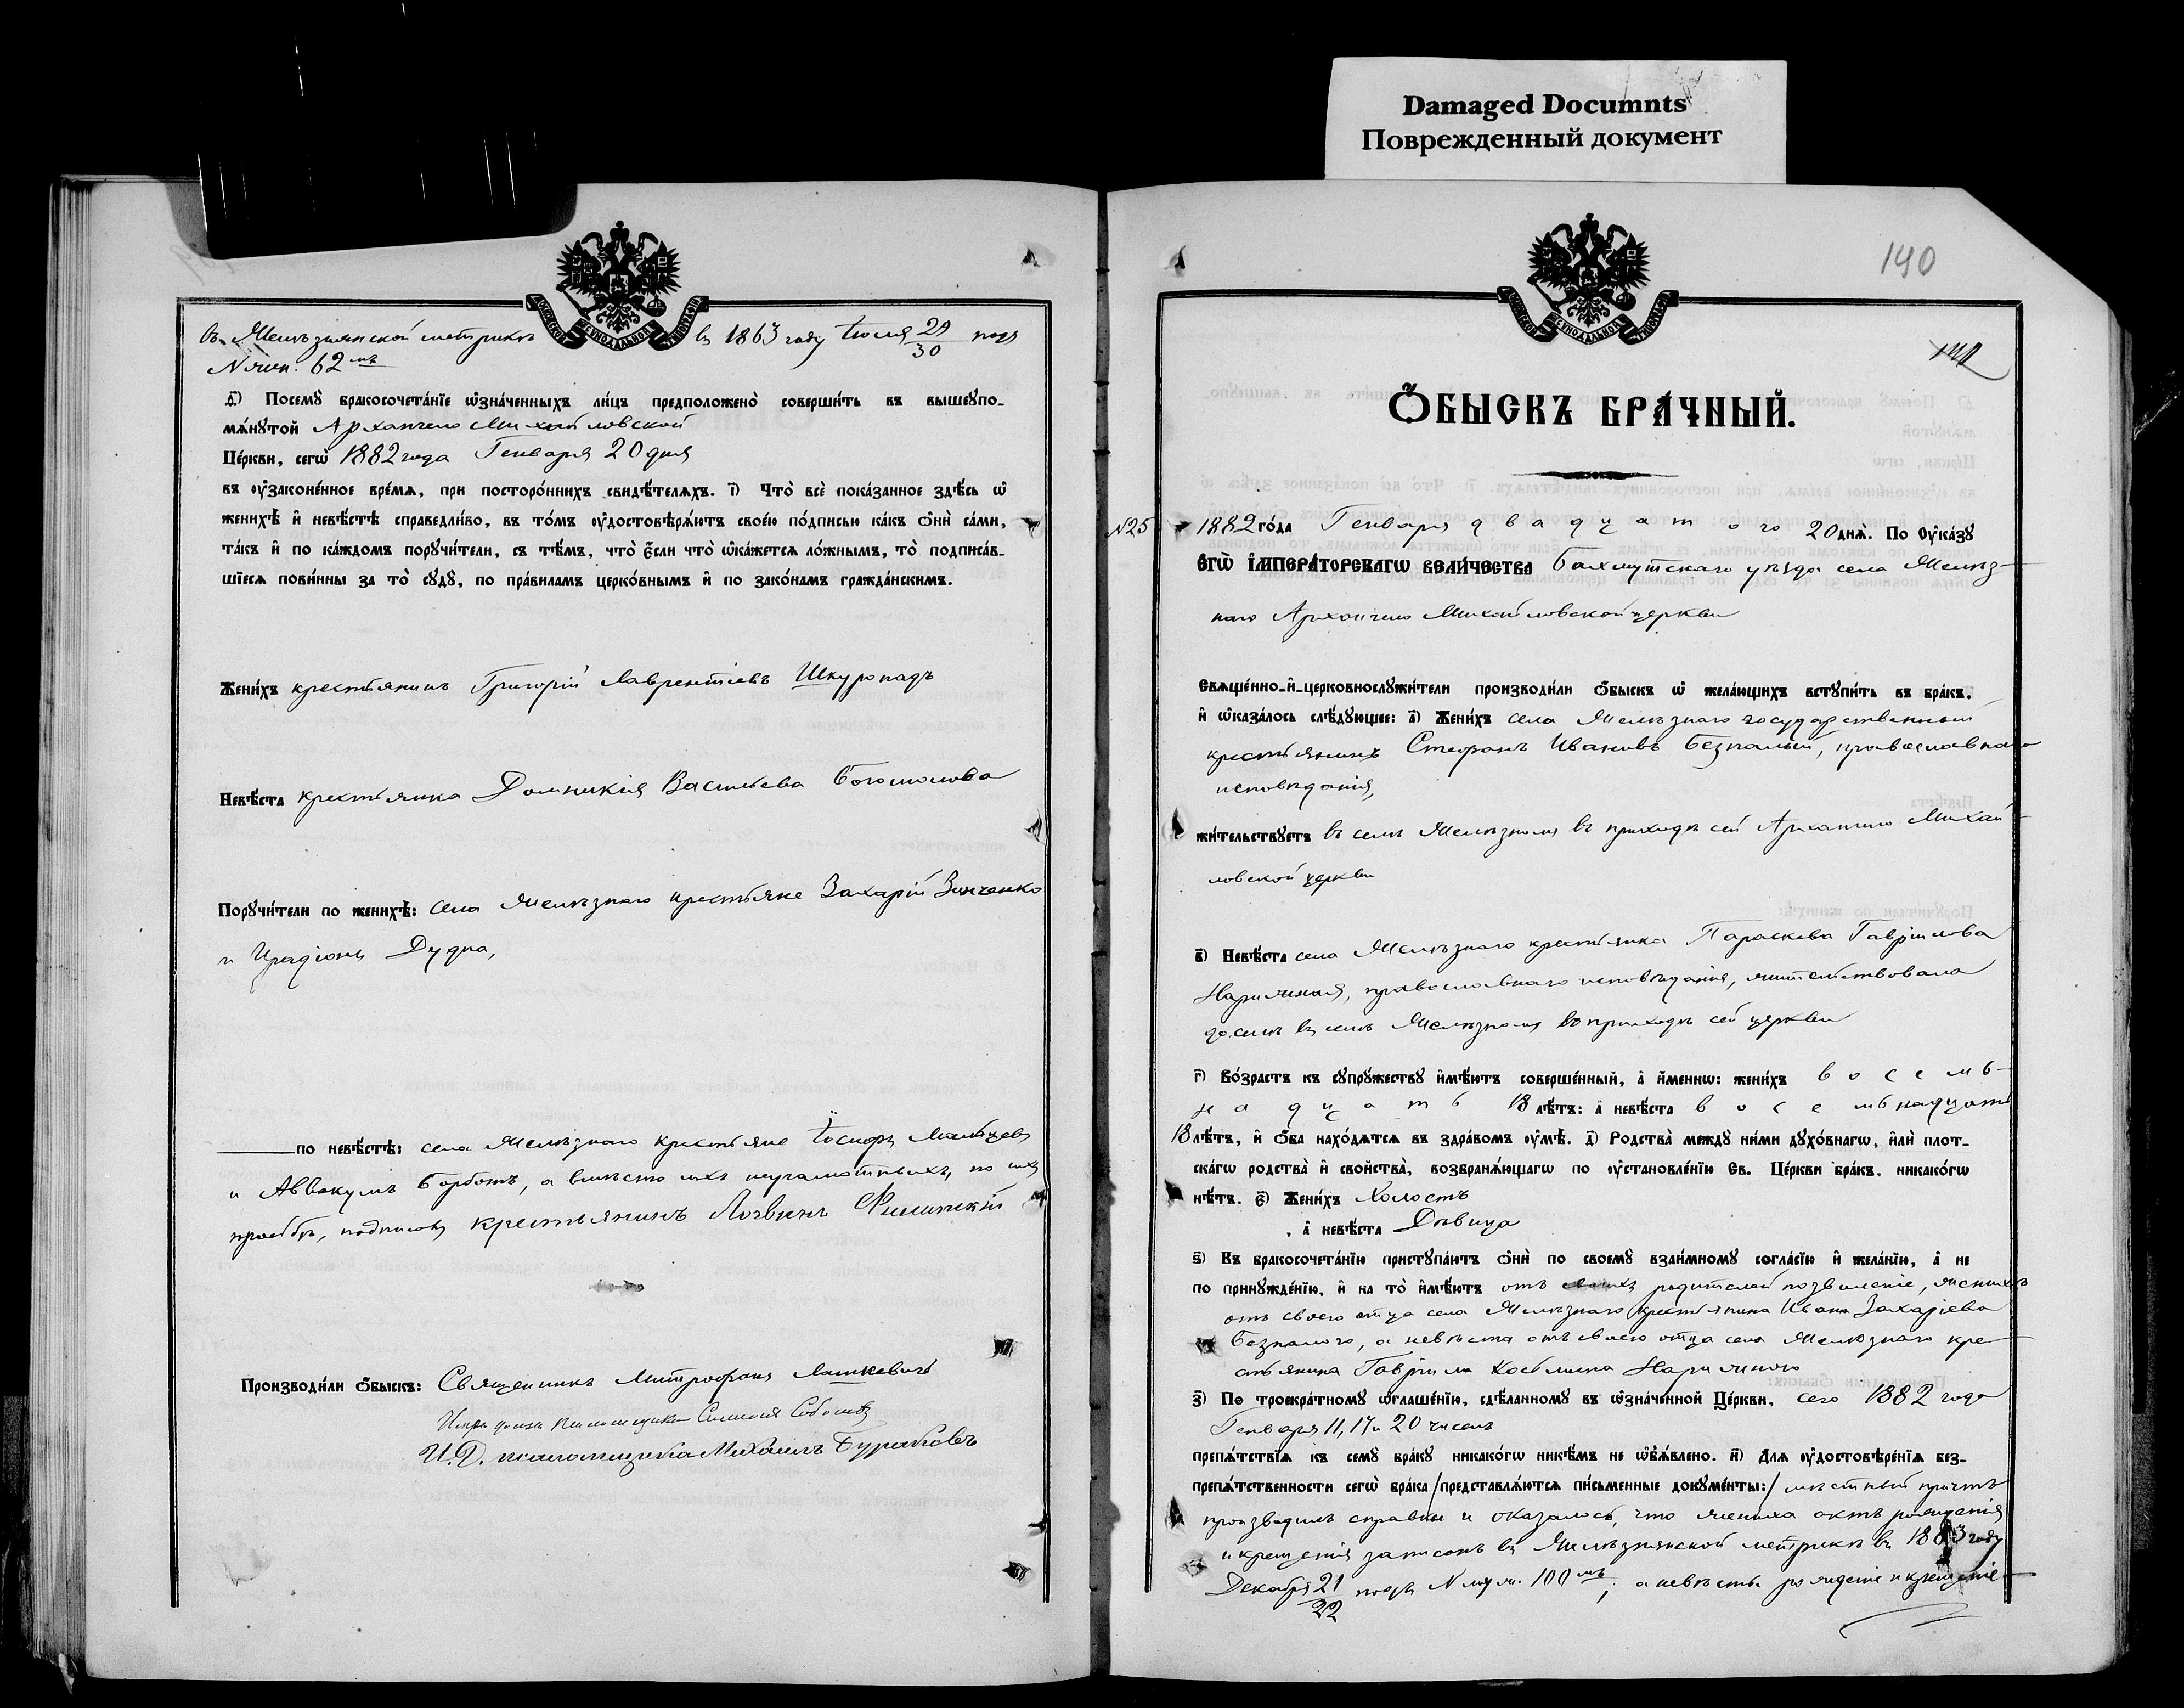 Damaged Documnts
Поврежденный документ
въ Желѣзнянской метрикѣ въ 1863 году Іюля 29/30 подъ
№ жен. 62мъ
д҃) Посемꙋ̀ бракосочета́нїе ѡ҆зна́ченныхъ ли́цъ предположено̀ соверши́ть въ вышеꙋпо-
мѧ́нꙋтой Архангело Михайловской
Це́ркви, сегѡ̀ 1882 года Генваря 20 дня
въ ᲂу҆законе́нное вре́мѧ, при посторо́ннихъ свидѣ́телѧхъ. і҃) Что̀ всѐ пока́занное здѣ́сь ѡ҆
женихѣ̀ и҆ невѣ́стѣ справедли́во, въ то́мъ ᲂу҆достовѣрѧ́ютъ свое́ю по́дписью ка́къ ѻ҆нѝ са́ми,
та́къ и҆ по ка́ждомъ порꙋчи́тели, съ тѣ́мъ, что̀ є҆́сли что̀ ѡ҆ка́жетсѧ ло́жнымъ, то̀ подписа́в-
шїесѧ пови́нны за то̀ сꙋдꙋ̀, по пра́виламъ церко́внымъ и҆ по зако́намъ гражда́нскимъ.
Жени́хъ крестьянинъ Григорій Лаврентіевъ Шкуропадъ
Невѣ́ста крестьянка Домникія Васильева Богомолова
Порꙋчи́тели по женихѣ̀: села Желѣзнаго крестьяне Захарій Зинченко
и Иродіонъ Дудка,
по невѣ́стѣ: села Желѣзнаго крестьяне Іосифъ Мальцевъ
и Аввакумъ Борботъ, а вмѣсто ихъ неграмотныхъ, по ихъ
просьбѣ, подписалъ крестьянинъ Логвинъ Филинскій
Производи́ли ѻ҆́быскъ: Священникъ Митрофанъ Лашкевичъ
псаломщика Симеонъ
И.Д. псаломщика Михаилъ Бураковъ
140
Ѻ҆́БЫСКЪ БРА́ЧНЫЙ.
№25 1882 го́да Генваря двадцатого 20 днѧ̀. По ᲂу҆ка́зꙋ
Є҆гѡ̀ І҆мпера́торскагѡ Вели́чества Бахмутскаго уѣзда села Желѣз-
наго Архангело Михайловской церкви
Свѧще́нно-и҆-церковнослꙋжи́тели производи́ли ѻ҆́быскъ ѡ҆ жела́ющихъ встꙋпи́ть въ бра́къ.
и҆ ѡ҆каза́лось слѣ́дꙋющее: а҃) Жени́хъ села Желѣзнаго государственный
крестьянинъ Стефанъ Ивановъ Безпалый, православнаго
исповѣданія,
жи́тельствꙋетъ въ селѣ Желѣзномъ въ приходѣ сей Архангело Михай-
ловской церкви
в҃) Невѣ́ста села Желѣзнаго крестьянка Параскева Гавріилова
Нарижная, православнаго исповѣданія, жительствовала
доселѣ въ селѣ Желѣзномъ въ приходѣ сей церкви
г҃) Во́зрастъ къ сꙋпрꙋ́жествꙋ и҆мѣ́ютъ соверше́нный, а҆ и҆́меннѡ: жени́хъ восемь-
надцать 18 лѣ́тъ: а҆ невѣ́ста восемьнадцать
18 лѣ́тъ, и҆ ѻ҆́ба нахо́дѧтсѧ въ здра́вомъ ᲂу҆мѣ̀. д҃) Родства̀ междꙋ̀ ни́ми дꙋхо́внагѡ, и҆лѝ плот-
ска́гѡ родства̀ и҆ сво́йства̀, возбранѧ́ющагѡ по ᲂу҆становле́нїю Св. Це́ркви бра́къ. никако́гѡ
нѣ́тъ. є҃) Жени́хъ Холостъ
, а҆ невѣ́ста Дѣвица
ѕ҃) Къ бракосочета́нїю пристꙋпа́ютъ ѻ҆нѝ по своемꙋ̀ взаи́мномꙋ согла́сїю и҆ жела́нїю, а҆ не
по принꙋжде́нїю. и҆ на то̀ и҆мѣ́ютъ отъ родителей позволеніе, женихъ
отъ своего отца села Желѣзнаго крестьянина Ивана Захаріева
Безпалаго, а невѣста отъ своего отца села Желѣзнаго кре-
стьянина Гавріила Косьмина Нарижнаго
з҃) По троекра́тномꙋ ѡ҆глаше́нїю, сдѣ́ланномꙋ въ ѡ҆зна́ченной Це́ркви, сего 1882 года
Генваря 11, 17 и 20 чиселъ
препѧ́тствїѧ къ семꙋ̀ бра́кꙋ никако́гѡ никѣ́мъ не ѡ҆б̾ѧ́влено. и҃) Для ᲂу҆достовѣре́нїѧ без-
препѧ́тственности сегѡ̀ бра́ка /представлѧ́ютсѧ пи́сьменные докꙋме́нты:/ мѣстный причтъ
производилъ справки и оказалось, что жениха актъ рожденія
и крещенія записанъ въ Желѣзнянской метрикѣ въ 1863 году
Декабря 21/22 подъ № муж. 100мъ; а невѣсты рожденіе и крещеніе